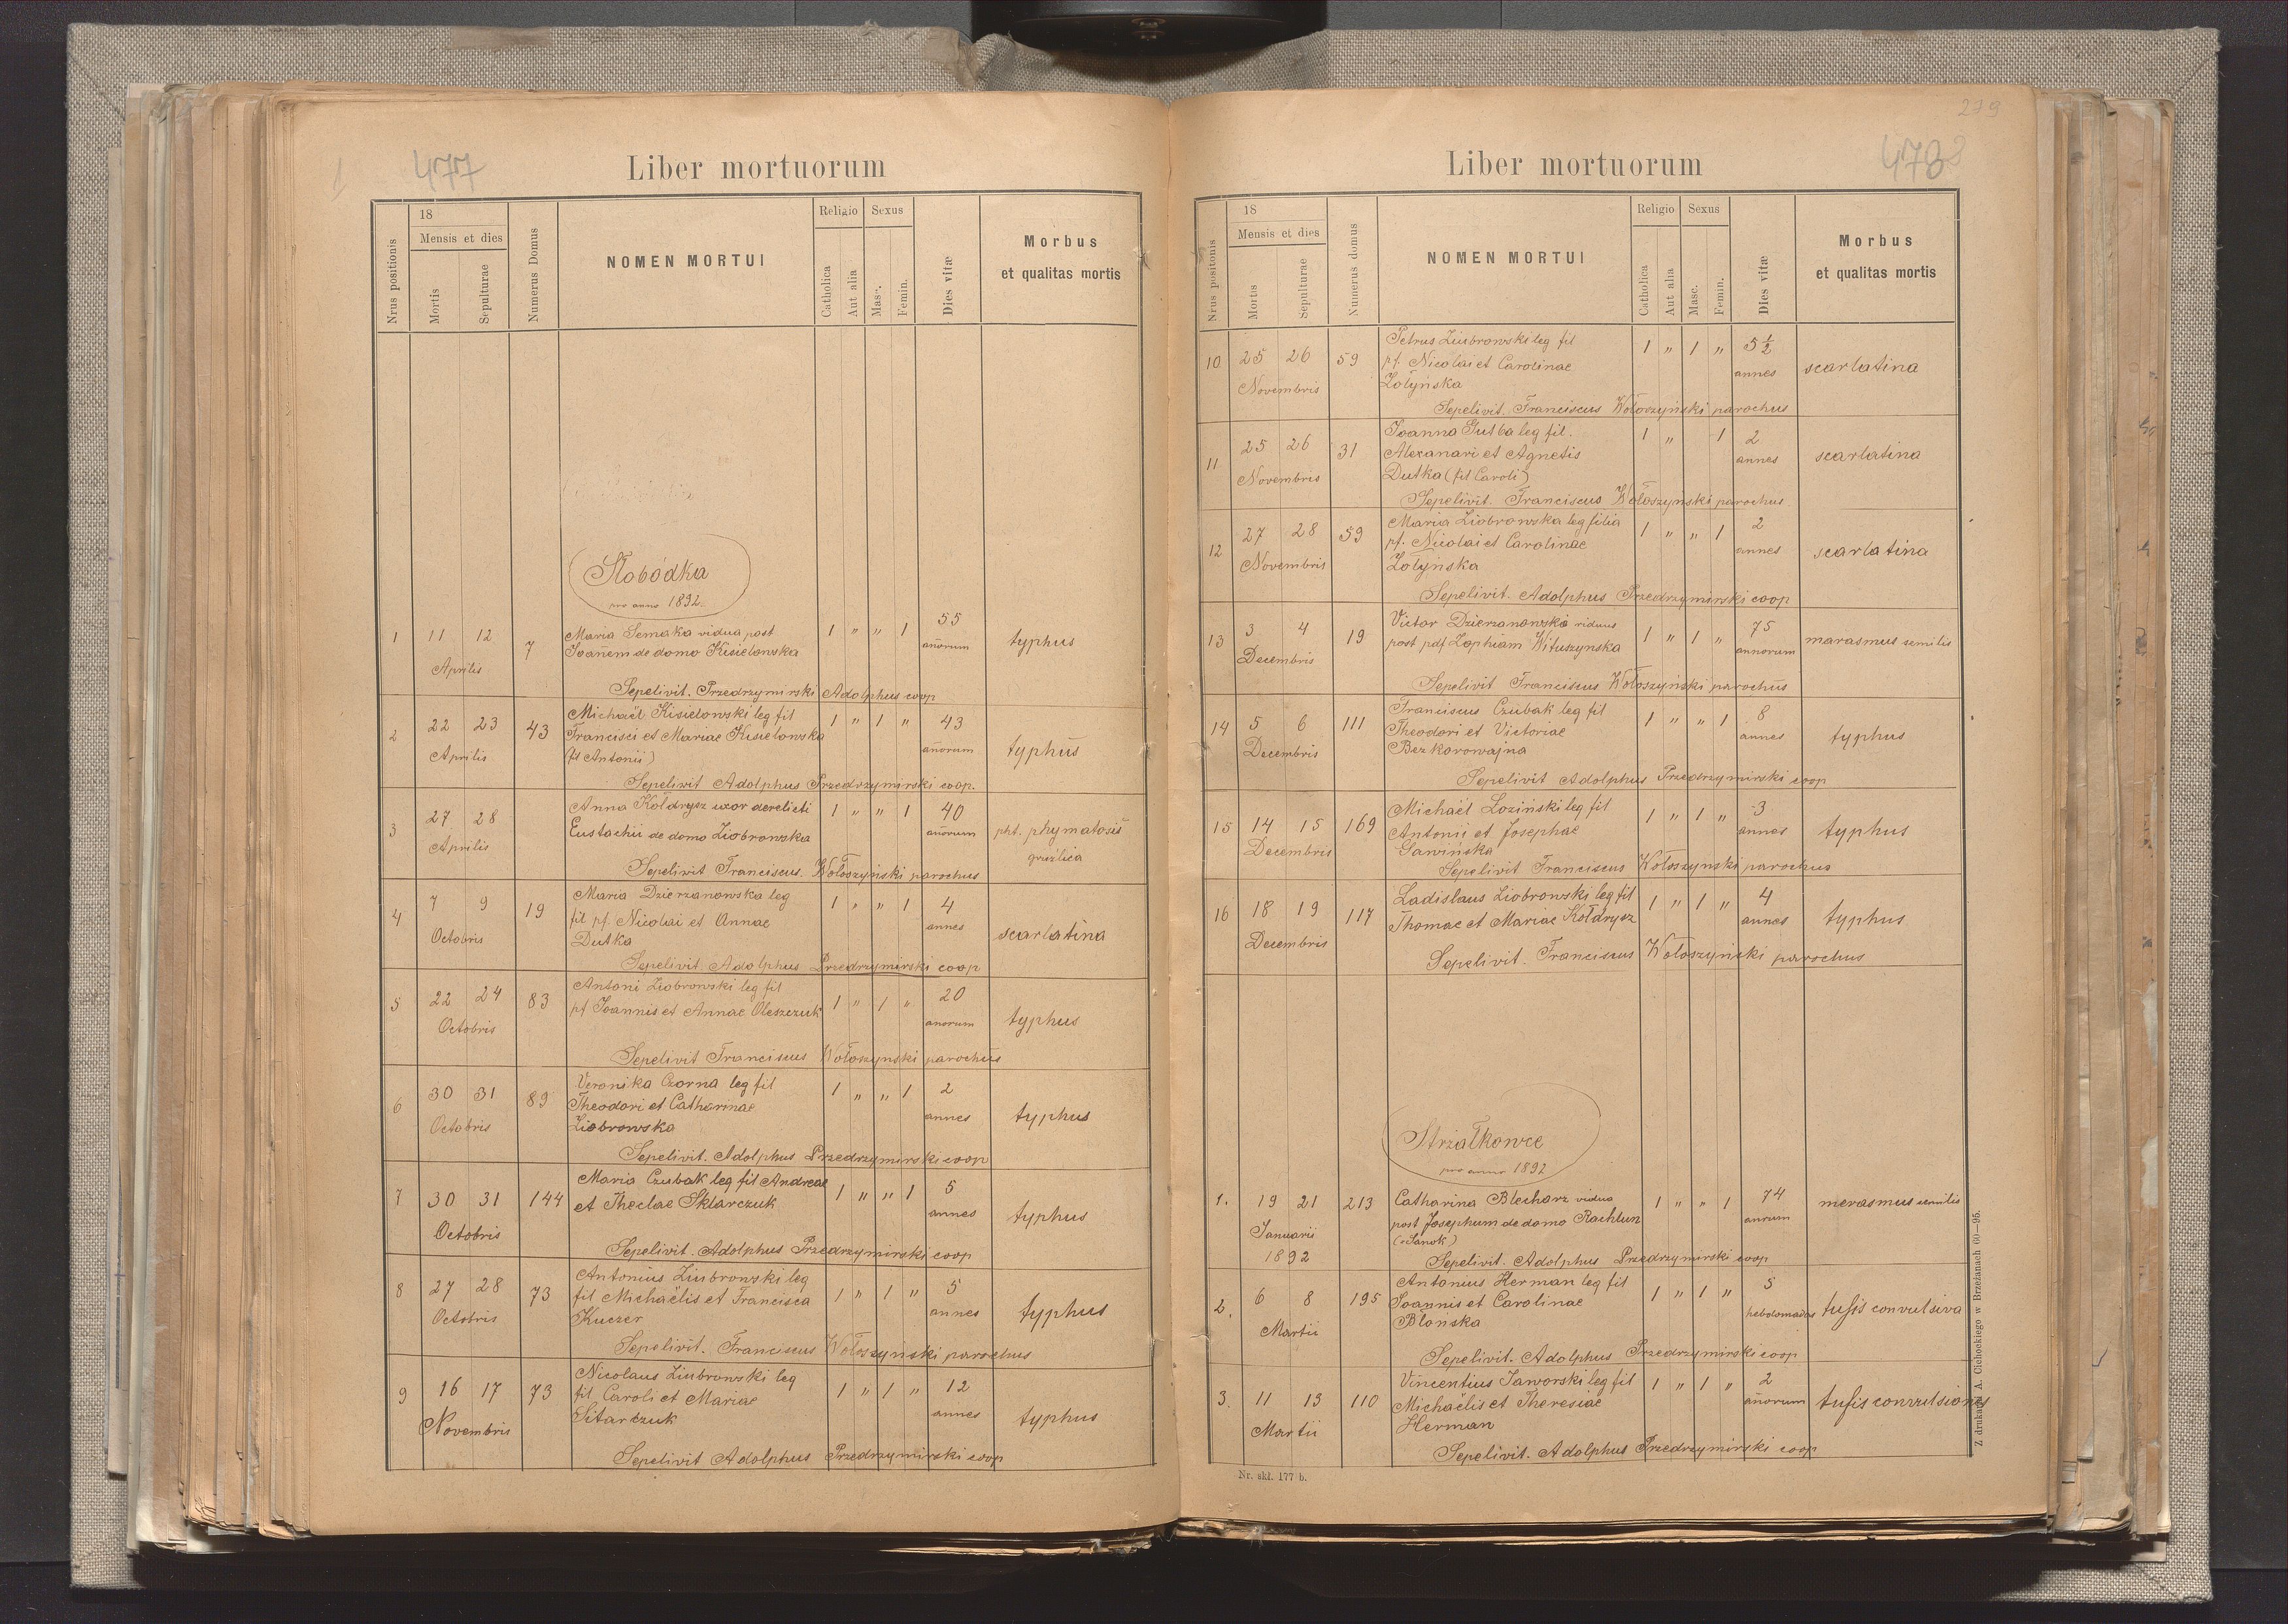 477
Liber mortuorum
Nrus positionis
18
Mensis et dies
Mortis
Sepulturae
Numerus Domus
NOMEN MORTUI
Religio
Catholica
Aut alia
Sexus
Masc.
Femin.
Dies vitæ
Morbus
et qualitas mortis
Słobódka
pro anno 1892.
1 11 12 Aprilis 7
Maria Semaka vidua post
Joannem de domo Kisielowska
1 " " 1 55 annorum typhus
Sepelivit. Przedrzymirski Adolphus coop
2 22 23 Aprilis 43
Michaël Kisielowski leg fil
Francisci et Mariae Kisielowska
(fil Antonii)
1 " 1 " 43 annorum typhus
Sepelivit Adolphus Przedrzymirski coop.
3 27 28 Aprilis
Anna Kołdrysz uxor derelicti
Eustachii de domo Ziobrowska
1 " " 1 40 annorum pht. phymatosis
gruźlica
Sepelivit Franciscus Wołoszyński parochus
4 7 9 Octobris 19
Maria Dzierzanowska leg
fil pf. Nicolai et Annae
Dutka
1 " " 1 4 annes scarlatina
Sepelivit Adolphus Przedrzymirski coop
5 22 24 Octobris 83
Antoni Ziobrowski leg fil
pf Joannis et Annae Oleszczuk
1 " 1 " 20 anorum typhus
Sepelivit Franciscus Wołoszynski parochus
6 30 31 Octobris 89
Veronika Czorna leg fil
Theodori et Catharinae
Ziobrowska
1 " " 1 2 annes typhus
Sepelivit. Adolphus Przedrzymirski coop
7 30 31 Octobris 144
Maria Czubak leg fil Andreae
et Theclae Sklarczuk
1 " " 1 5 annes typhus
Sepelivit. Adolphus Przedrzymirski coop
8 27 28 Octobris 73
Antonius Ziubrowski leg
fil Michaëlis et Francisca
Kuczer
1 " 1 " 5 annes typhus
Sepelivit. Franciscus Wołoszyński parochus
9 16 17 Novembris 73
Nicolaus Ziubrowski leg
fil Caroli et Mariae
Sitarczuk
1 " 1 " 12 annes typhus
Sepelivit Adolphus Przedrzymirski coop
279
478
Liber mortuorum
Nrus positonis
18
Mensis et dies
Mortis
Sepulturae
Numerus domus
NOMEN MORTUI
Religio
Catholica
Aut alia
Sexus
Masc.
Femin.
Dies vitæ
Morbus
et qualitas mortis
10 25 26 Novembris 59
Petrus Ziubrowski leg fil
pf. Nicolai et Carolinae
Zołyńska
1 " 1 " 5 ½ annes scarlatina
Sepelivit. Franciscus Wołoszyński parochus
11 25 26 Novembris 31
Joanna Gutba leg fil.
Alexanari et Agnetis
Dutka (fil Caroli)
1 " 1 2 annes scarlatina
Sepelivit. Franciscus Wołoszynski parochus
12 27 28 Novembris 59
Maria Ziobrowska leg filia
pf. Nicolai et Carolinae
Zołyńska
1 " " 1 2 annes scarlatina
Sepelivit. Adolphus Przedrzymirski coop
13 3 4 Decembris 19
Victor Dzierzanowski viduus
post pdf Zophiam Wituszynska
1 " 1 " 75 annorum marasmus senilis
Sepelivit Franciscus Wołoszyński parochus
14 5 6 Decembris 111
Franciscus Czubak leg fil
Theodori et Victoriae
Bezkorowajna
1 " " 1 8 annes typhus
Sepelivit Adolphus Przedrzymirski coop
15 14 15 Decembris 169
Michaël Loziński leg fil
Antonii et Josephae
Gawińska
1 " 1 " 3 annes typhus
Sepelivit Franciscus Wołoszynski parochus
16 18 19 Decembris 117
Ladislaus Ziobrowski leg fil
Thomae et Mariae Kołdrysz
1 " 1 " 4 annes typhus
Sepelivit. Franciscus Wołoszyński parochus
Strzałkowce
pro anno 1892
1. 19 21 Januarii 1892 213
Catharina Blecharz vidua
post Josephum de domo Rachlun
(Sanok)
1 " " 1 74 anrum merasmus senilis
Sepelivit. Adolphus Przedrzymirski coop
2. 6 8 Martii 195
Antonius Herman leg fil
Joannis et Carolinae
Błońska
1 " 1 " 5 hebdomados tusis convulsiva
Sepelivit. Adolphus Przedrzymirski coop
3. 11 13 Martii 110
Vincentius Jaworski leg fil
Michaëlis et Theresiae
Herman
1 " 1 " 2 annorum tusis convulsiones
Sepelivit. Adolphus Przedrzymirski coop
Nr. skł. 177 b.
Z drukarni A. Cichockiego w Brzeżanach 60—95.